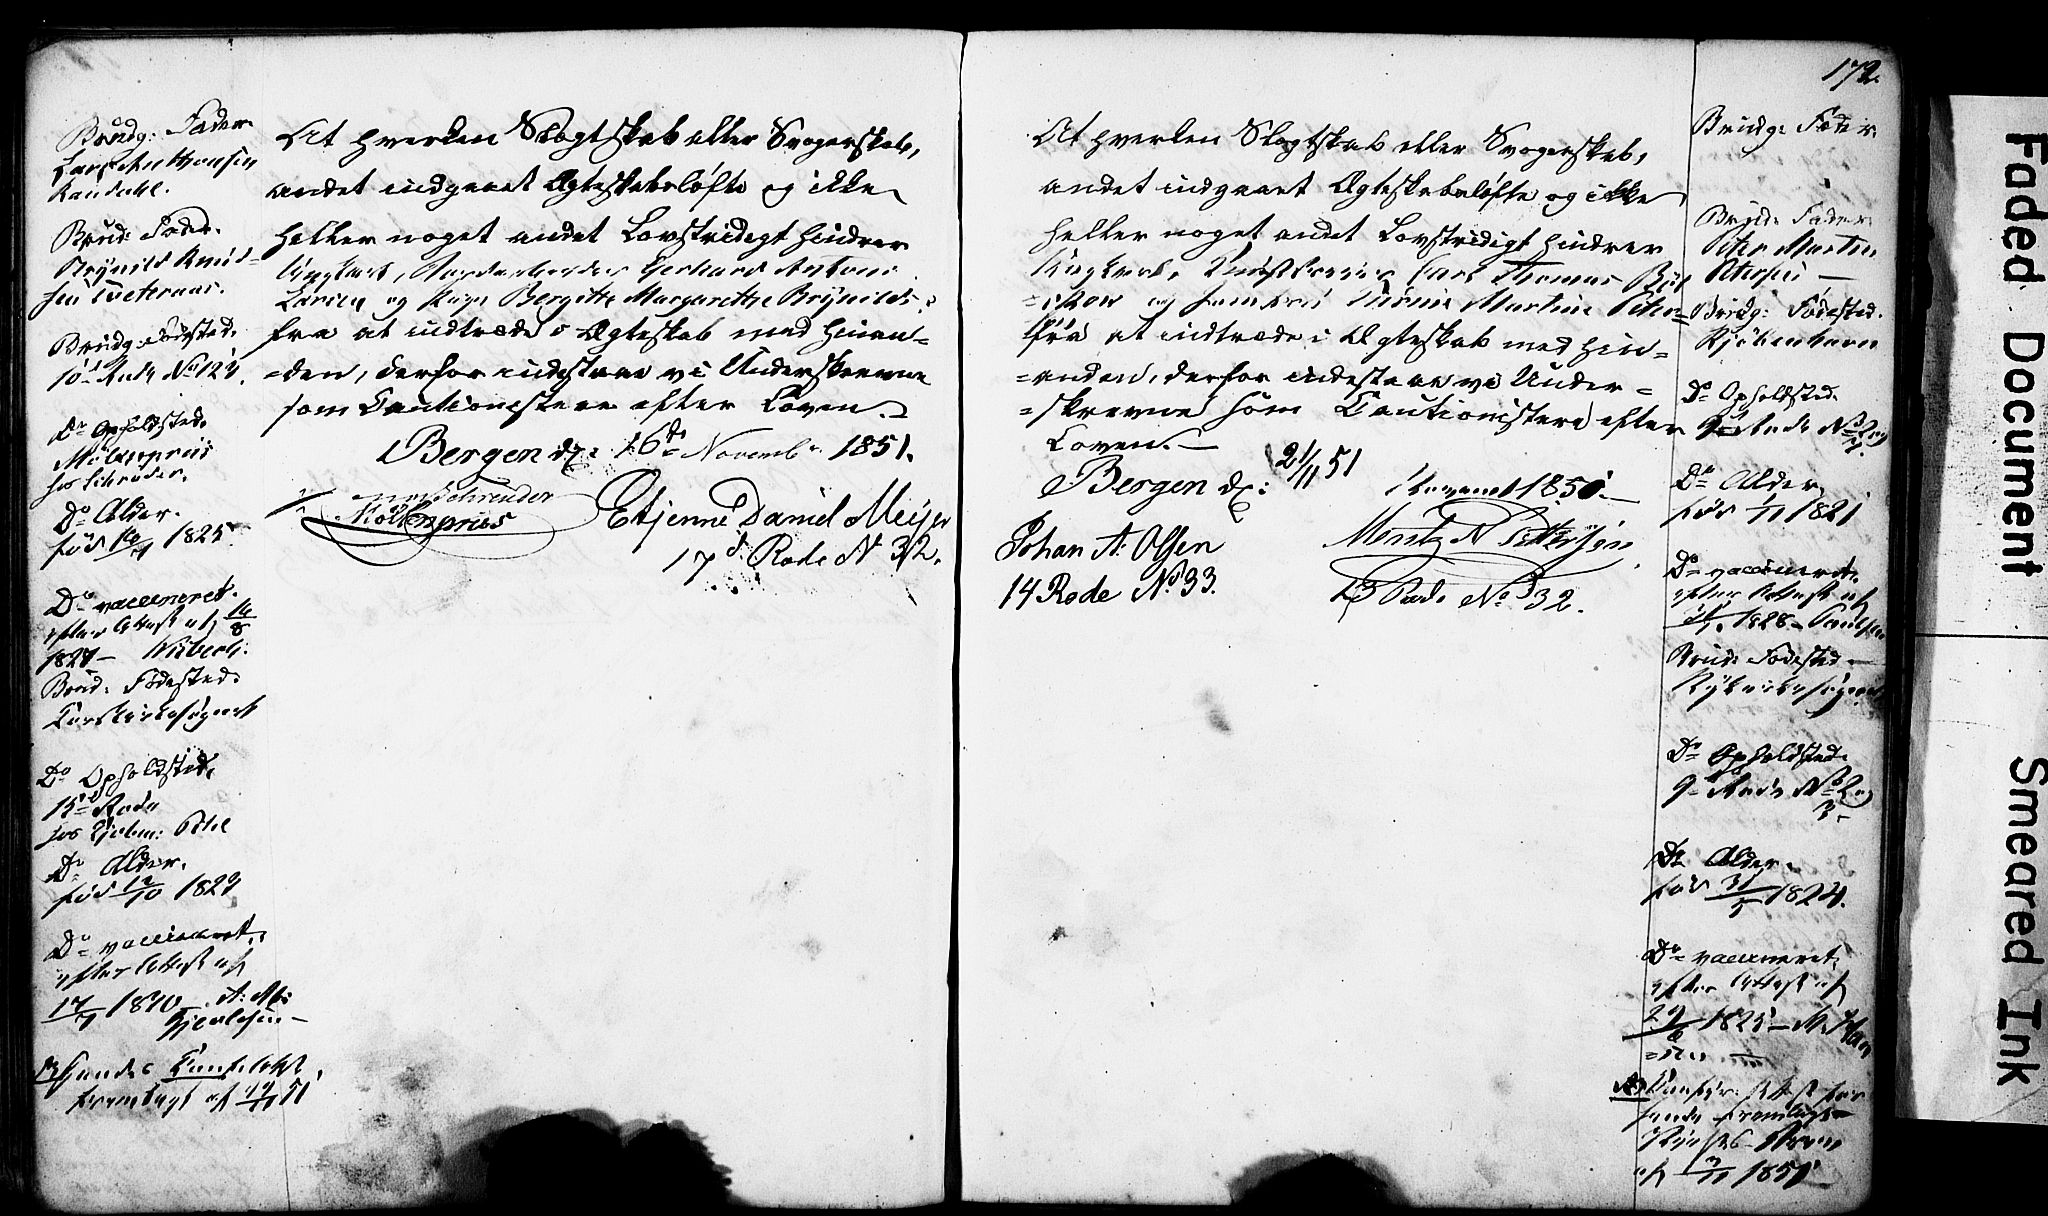 Brudg: Fader.
Lars Anthonsen
Randahl.
Brud: Fader.
Brynild Knud=
sen Tveteraas.
Brudg: Fødested.
10de Rode No 124.
Do Opholdsted.
Möllenpriis
hos Schrøder.
Do Alder.
fød 1825
Do vaccineret.
efter Attest af 14/8
1827 –
Brud: Fødested.
Korskirkesognet
Do Opholdsted.
15de Rode
hos
Do Alder.
fød 12/10 1829
Do vaccineret.
efter Attest af
1840
NB
fremlagt af 51
At hverken Slægtskab eller Svogerskab,
andet indgaaet Ægteskabsløfte og ikke
heller noget andet Lovstridigt hindrer
Ungkarl, Gerhard Antoni
Larsen og Pige Bergitte Margarethe Brynilds:
fra at indtræde i Ægteskab med hinan=
=den, derfor indestaae vi Underskrevne
som Cautionistere efter Loven.
Bergen d: 16de Novemb: 1851.
Schreuder
Möllenpriis
Etjenne Daniel Meijer
17d Rode N 32.
172.
At hverken Slægtskab eller Svogerskab,
andet indgaaet Ægteskabsløfte og ikke
heller noget andet Lovstridigt hindrer
Ungkarl, Carl Thomas
og Martine Peter=
fra at indtræde i Ægteskab med hin=
=anden, derfor indestaae vi Under=
=skrevne som Cautionistere efter
Loven. –
Bergen d: 21/11 51
Johan A: Olsen
14 Rode No 33.
Mentz N Pettersen
13 Rode No 32.
Brudg: Fader.
Brud: Fader.
Peter Martin
Petersen –
Brudg: Fødested.
Kjøbenhavn
Do Opholdsted.
9de Rode No 2 og
Do Alder.
fød 1821
Do vaccineret.
efter Attest af
1828 – Poulsen
Brud: Fødested –
Nykirkesognet
Do Opholdsted.
9de Rode No 2 og
3 –
Do Alder.
fød 31/5 1824.
Do vaccineret.
efter Attest af
29/6 1825 –
NB
fremlagt
af 3/11 1851
Faded Document
Smeared Ink